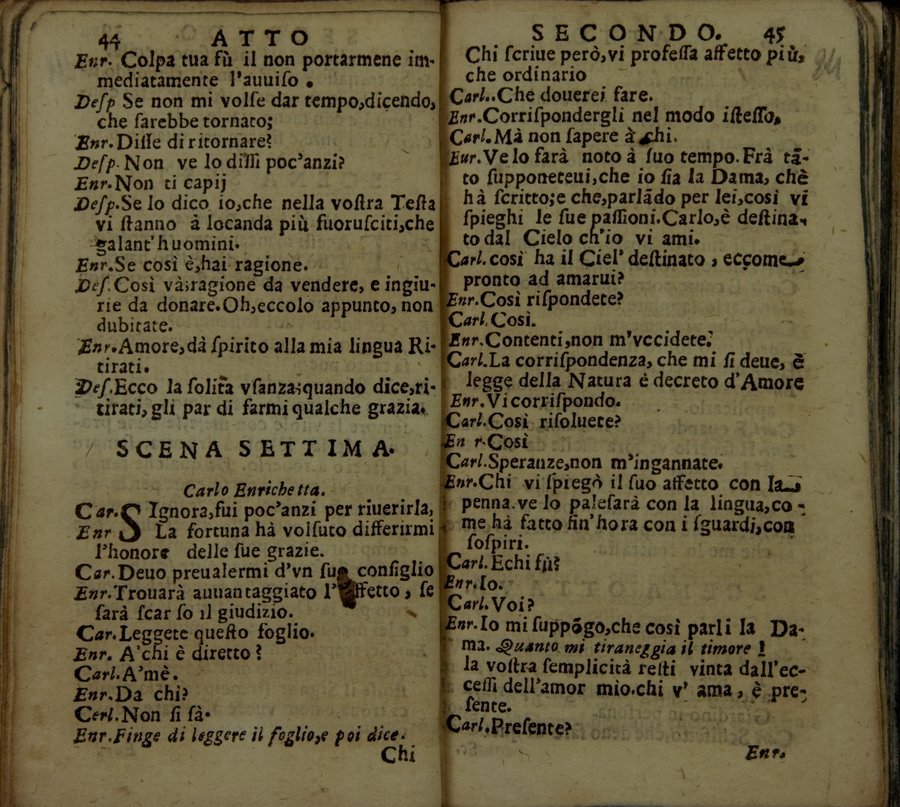 44 ATTO
Enr. Colpa tua fù il non portarmene im-
mediatamente l'auuiſo .
Deſp Se non mi volſe dar tempo,dicendo,
che ſarebbe tornato;
Enr.Diſſe di ritornare?
Deſp.Non ve lo diſſi poc'anzi?
Enr.Non ti capij
Deſp.Se lo dico io,che nella voſtra Teſta
vi ſtanno à locanda più fuoruſciti,che
galant'huomini.
Enr.Se così è,hai ragione.
Deſ.Così và;ragione da vendere, e ingiu-
rie da donare.Oh,eccolo appunto, non
dubitate.
Enr.Amore,dà ſpirito alla mia lingua Ri-
tirati.
Deſ.Ecco la ſolita vſanza;quando dice,ri-
tirati, gli par di farmi qualche grazia.
SCENA SETTIMA.
Carlo Enrichetta.
Car.SIgnora,fui poc'anzi per riuerirla,
Enr La fortuna hà volſuto differirmi
l'honore delle ſue grazie.
Car.Deuo preualermi d'vn ſuo conſiglio
Enr.Trouarà auuantaggiato l'affetto , ſe
ſarà ſcar ſo il giudizio.
Car.Leggete queſto foglio.
Enr. A'chi è diretto ?
Carl.A'mè.
Enr.Da chi?
Cerl.Non ſi ſà.
Enr.Finge di leggere il foglio,e poi dice.
Chi
SECONDO. 45
Chi ſcriue però,vi profeſſa affetto più,
che ordinario
Carl..Che douerei fare.
Enr.Corriſpondergli nel modo iſteſſo,
Carl.Mà non ſapere à chi.
Eur.Ve lo farà noto à ſuo tempo.Frà tā-
to ſupponeteui,che io ſia la Dama, chè
hà ſcritto;e che,parlādo per lei,così vi
ſpieghi le ſue paſſioni.Carlo,è deſtina-
to dal Cielo ch'io vi ami.
Carl.così ha il Ciel' deſtinato , eccome
pronto ad amarui?
Enr.Così riſpondete?
Carl.Così.
Enr.Contenti,non m'vccidete.
Carl.La corriſpondenza, che mi ſi deue, è
legge della Natura è decreto d'Amore
Enr.Vi corriſpondo.
Carl.Così riſoluete?
En r.Così
Carl.Speranze,non m'ingannate.
Enr.Chi vi ſpiegò il ſuo affetto con la
penna.ve lo paleſarà con la lingua,co-
me hà fatto ſin'hora con i ſguardi,con
ſoſpiri.
Carl.Echi fù?
Enr.Io.
Carl.Voi?
Enr.Io mi ſuppōgo,che così parli la Da-
ma. Quanto mi tiraneggia il timore !
la voſtra ſemplicità reſti vinta dall'ec-
ceſſi dell'amor mio.chi v' ama, è pre-
ſente.
Carl.Preſente?
Enr.